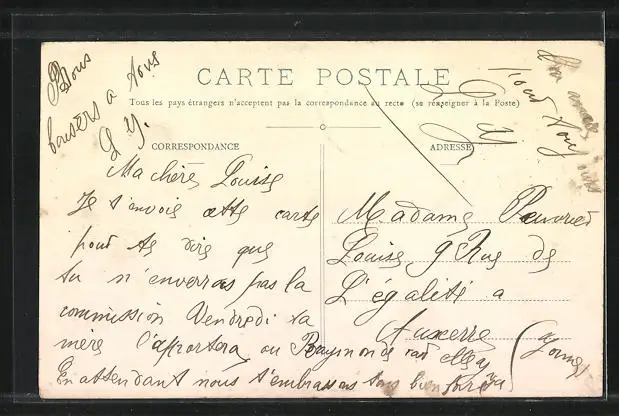 Bons
baisers a tous
L y.
CARTE POSTALE
Tous les pays étrangers n'acceptent pas la correspondance au recto (se renseigner à la Poste)
CORRESPONDANCE
Ma chère Louise
Je t'envoie cette carte
pour te dire que
tu n'enverras pas la
commission Vendredi ta
mère l'apportera ou Raymonde
En attendant nous t'embrassons tous bien fort
ADRESSE
Madame
Louise 9 Rue de
L'égalité a
Auxerre
(Yonne)